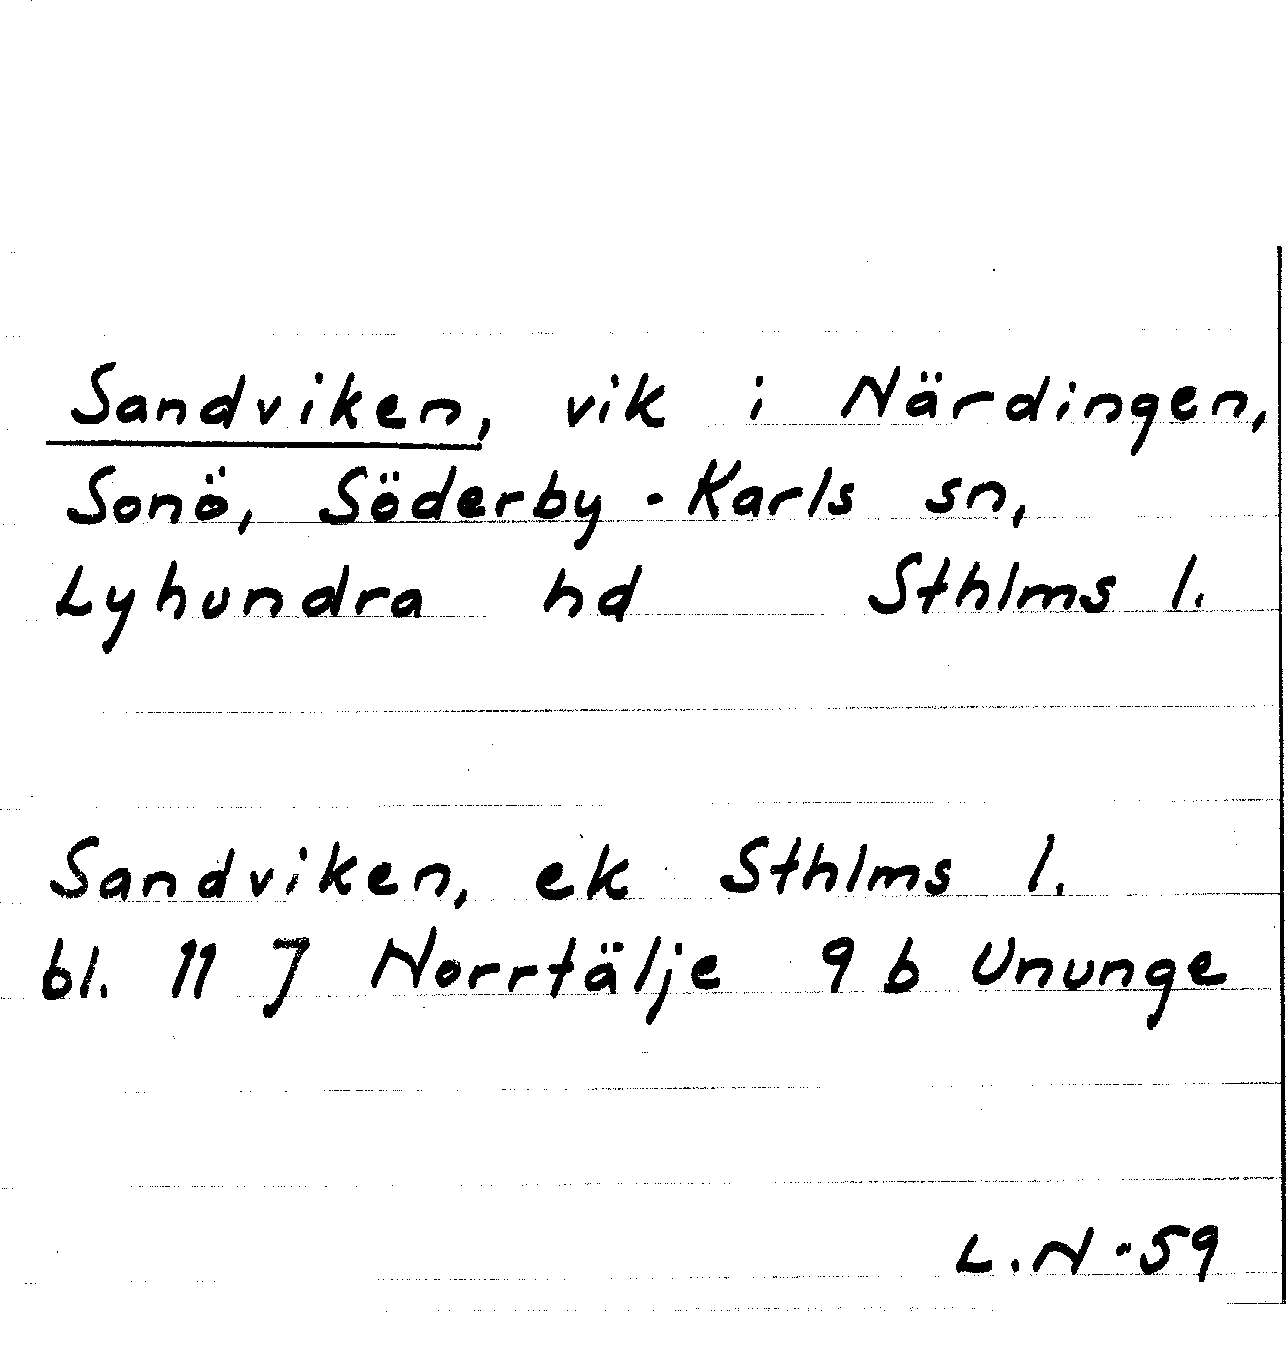 Sandviken, vik i Närdingen,
Sonö, Söderby-Karls sn,
Lyhundra hd Sthlms l.
Sandviken, ek Sthlms l.
bl. 11 J Norrtälje 9 b Ununge
L.N-59